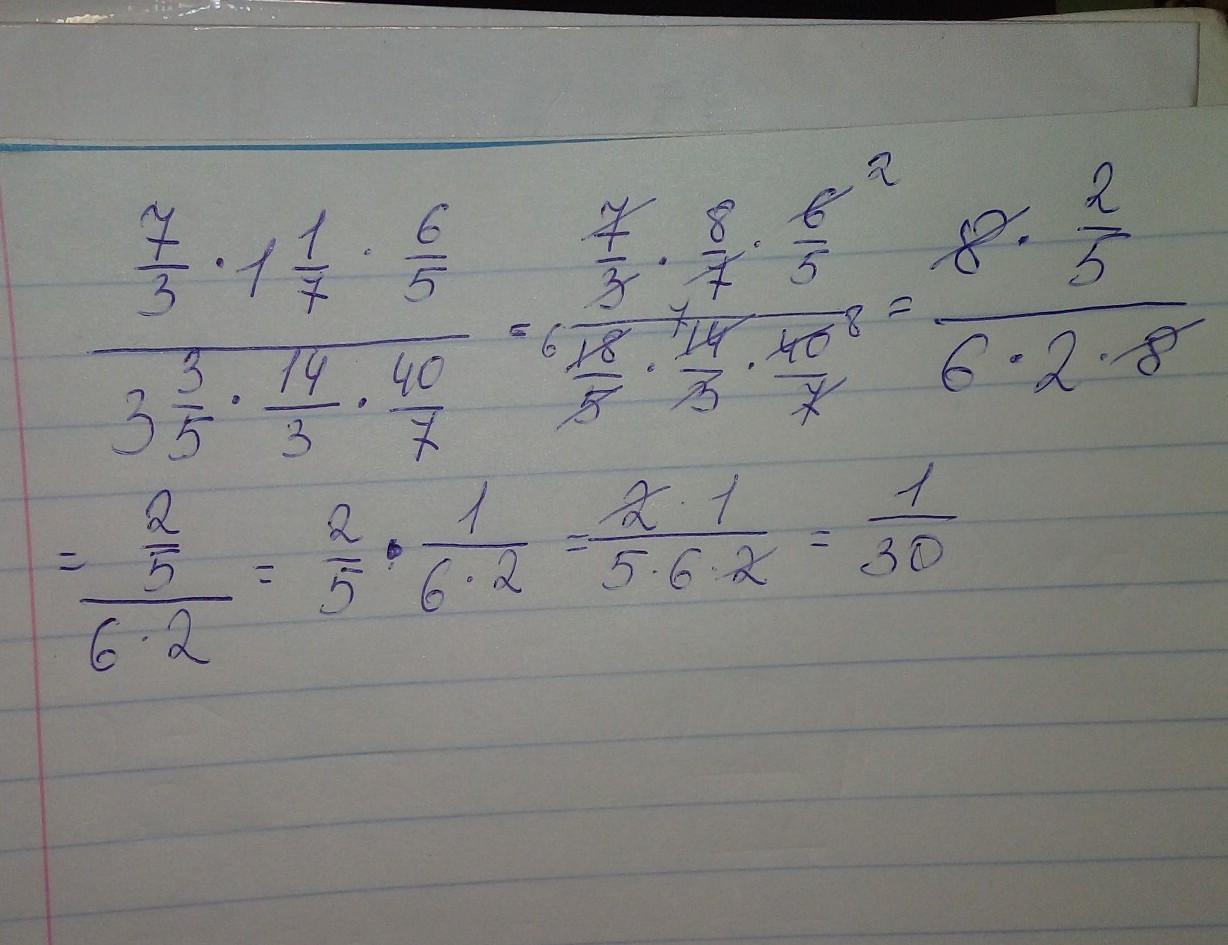 7/3 · 1 1/7 · 6/5 / 3 3/5 · 14/3 · 40/7 = 7/3 · 8/7 · 6 2/5 / 6 18/5 · 7 14/3 · 40 8/7 = 8 · 2/5 / 6 · 2 · 8
= 2/5 / 6 · 2 = 2/5 · 1/6 · 2 = 2 · 1 / 5 · 6 · 2 = 1/30